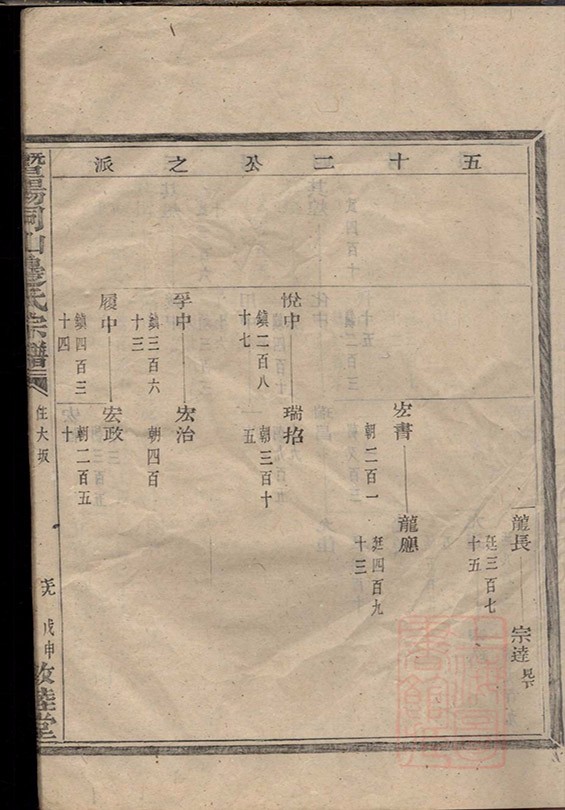 五十二公之派
龍長—宗達 見下
廷三百七
十五
宏書—龍應
朝二百一
廷四百九
十三
悅中—瑞招
鎮二百八
十七
朝三百十
五
孚中—宏治
鎮三百六
十三
朝四百
履中—宏政
鎮四百三
十四
朝二百五
十
暨陽同山邊氏宗譜
住大坂
戊申
敦睦堂